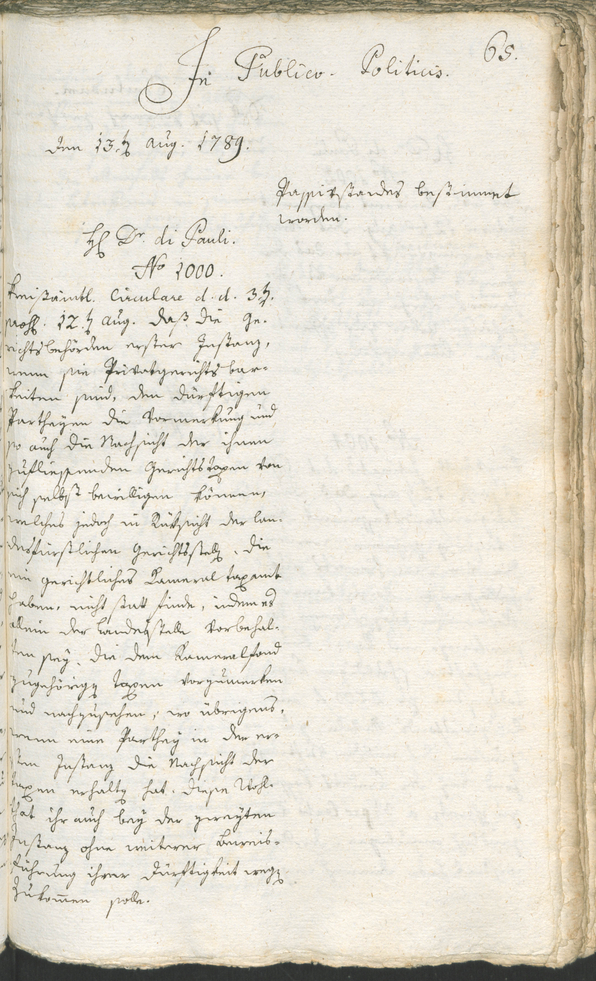 65.
In Publico. Politicis.
den 13.t Aug. 1789.
Passivstandes bestimmet
worden.
H Dr. di Pauli.
No 1000.
Kreisämtl. Circulare d. d. 3t.
12.t Aug. daß die Ge-
richtsbehörden erster Instanz,
wenn sie Privatgerichtsbar-
keiten sind, den dürftigen
Partheyen die Vormerkung und
so auch die Nachsicht der ihnen
zufliessenden Gerichtstaxen von
sich selbst bewilligen können,
welches jedoch in Rüksicht der lan-
desfürstlichen Gerichtsstell, die
ein gerichtliches Kameral taxamt
haben, nicht statt finde, indem es
allein der Landesstelle vorbehal-
ten sey, die dem Kameralfond
zugehörige taxen vorzumerken
und nachzusehen; wo übrigens,
wenn eine Parthey in der er-
sten Instanz die Nachsicht der
taxen erhalten hat, diese Wohl-
that ihr auch bey der zweyten
Instanz ohne weiterer Beweis-
führung ihrer Dürftigkeit wegen
zukommen solle.